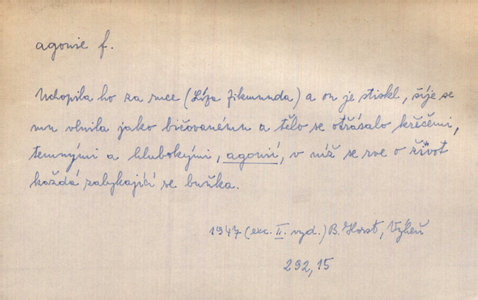 agonie f.
Uchopila ho za ruce (Líza Zikmunda) a on je stiskl, šíje se
mu vlnila jako bičovanému a tělo se otřásalo křečemi,
temnými a hlubokými, agonií, v níž se rve o život
každá zalykající se buňka.
1947 (exc. II. vyd.) B. Horst, Výheň
292,15